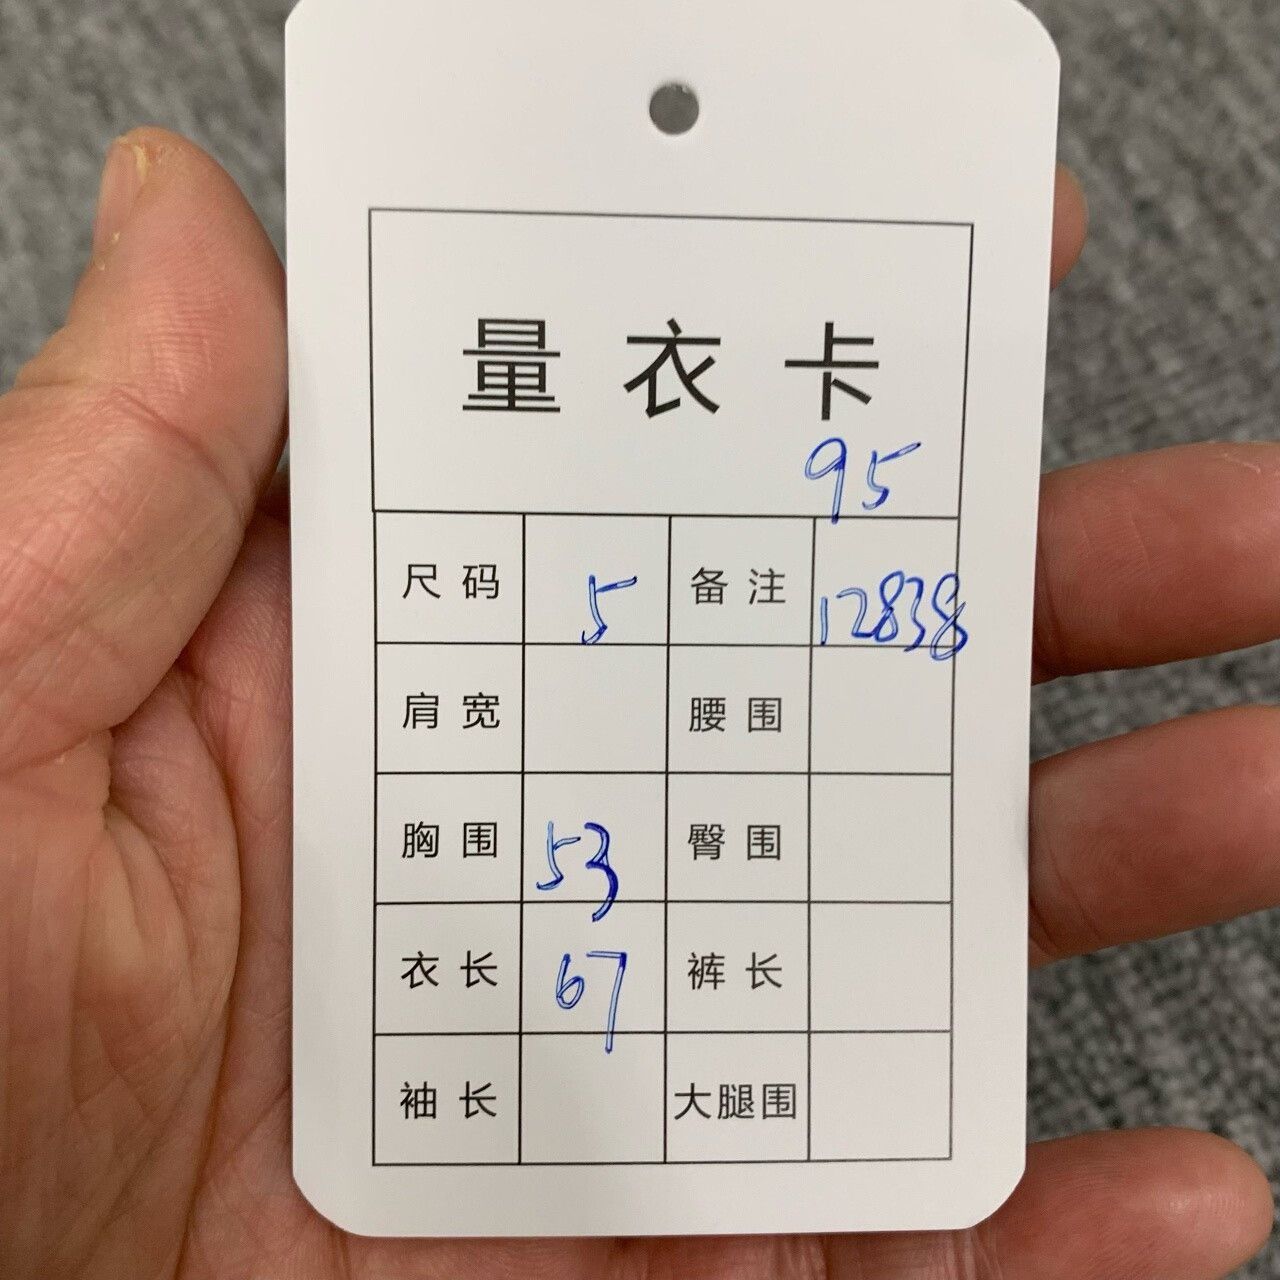 量衣卡
95
尺码 5 备注 12838
肩宽 腰围
胸围 53 臀围
衣长 67 裤长
袖长 大腿围